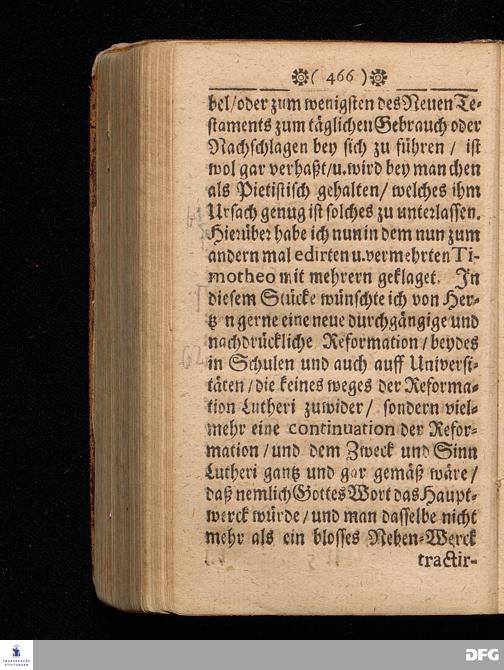 ( 466 )
bel/oder zum wenigsten des Neuen Te-
staments zum täglichen Gebrauch oder
Nachschlagen bey sich zu führen / ist
wol gar verhaßt/u. wird bey man chen
als Pietistisch gehalten/ welches ihm
Ursach genug ist solches zu unterlassen.
Hierüber habe ich nun in dem nun zum
andern mal edirten u. vermehrten Ti-
motheo mit mehrern geklaget. In
diesem Stücke wünschte ich von Her-
tz n gerne eine neue durchgängige und
nachdrückliche Reformation / beydes
in Schulen und auch auff Universi-
täten / die keines weges der Reforma-
tion Lutheri zuwider / sondern viel-
mehr eine continuation der Refor-
mation / und dem Zweck und Sinn
Lutheri gantz und gar gemäß wäre /
daß nemlich Gottes Wort das Haupt-
werck würde / und man dasselbe nicht
mehr als ein blosses Neben-Werck
tractir-
FRANCKESCHE
STIFTUNGEN
DFG